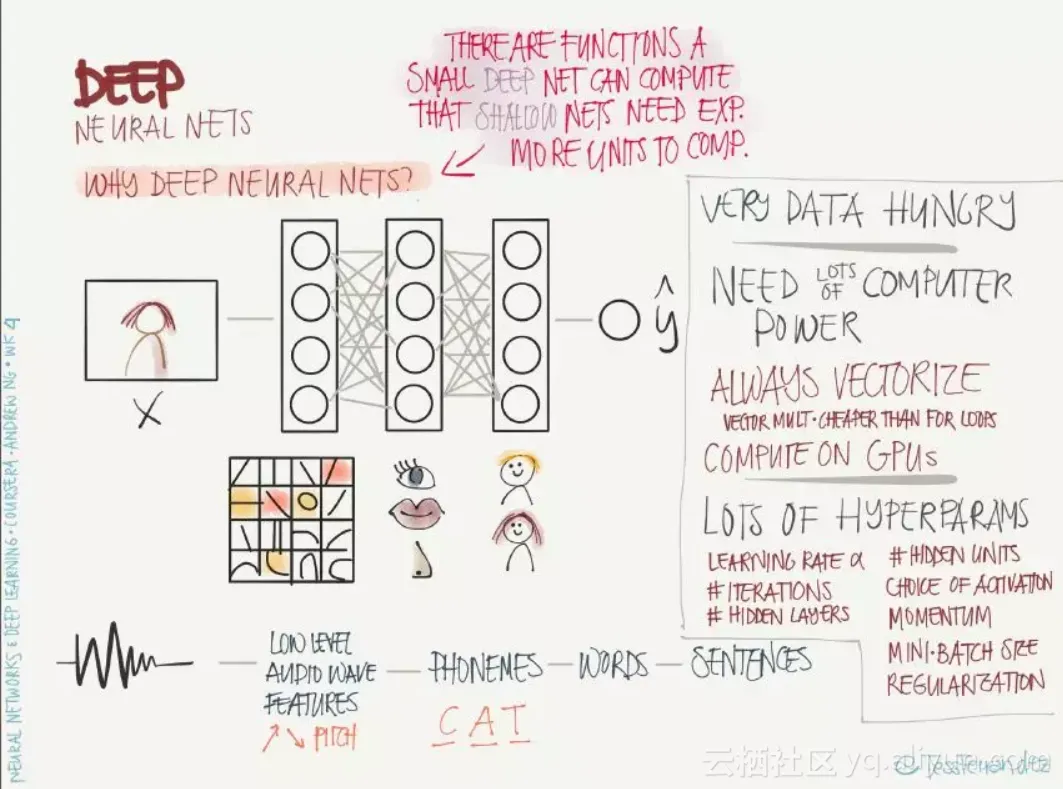 DEEP
NEURAL NETS
THERE ARE FUNCTIONS A
SMALL DEEP NET CAN COMPUTE
THAT SHALLOW NETS NEED EXP.
MORE UNITS TO COMP.
WHY DEEP NEURAL NETS?
X
ŷ
VERY DATA HUNGRY
NEED LOTS OF COMPUTER
POWER
ALWAYS VECTORIZE
VECTOR MULT. CHEAPER THAN FOR LOOPS
COMPUTE ON GPUs
LOTS OF HYPERPARAMS
LEARNING RATE α
# ITERATIONS
# HIDDEN LAYERS
# HIDDEN UNITS
CHOICE OF ACTIVATION
MOMENTUM
MINI-BATCH SIZE
REGULARIZATION
LOW LEVEL
AUDIO WAVE
FEATURES
PITCH
PHONEMES
C A T
WORDS
SENTENCES
NEURAL NETWORKS & DEEP LEARNING • COURSERA • ANDREW NG • WK 4
云栖社区